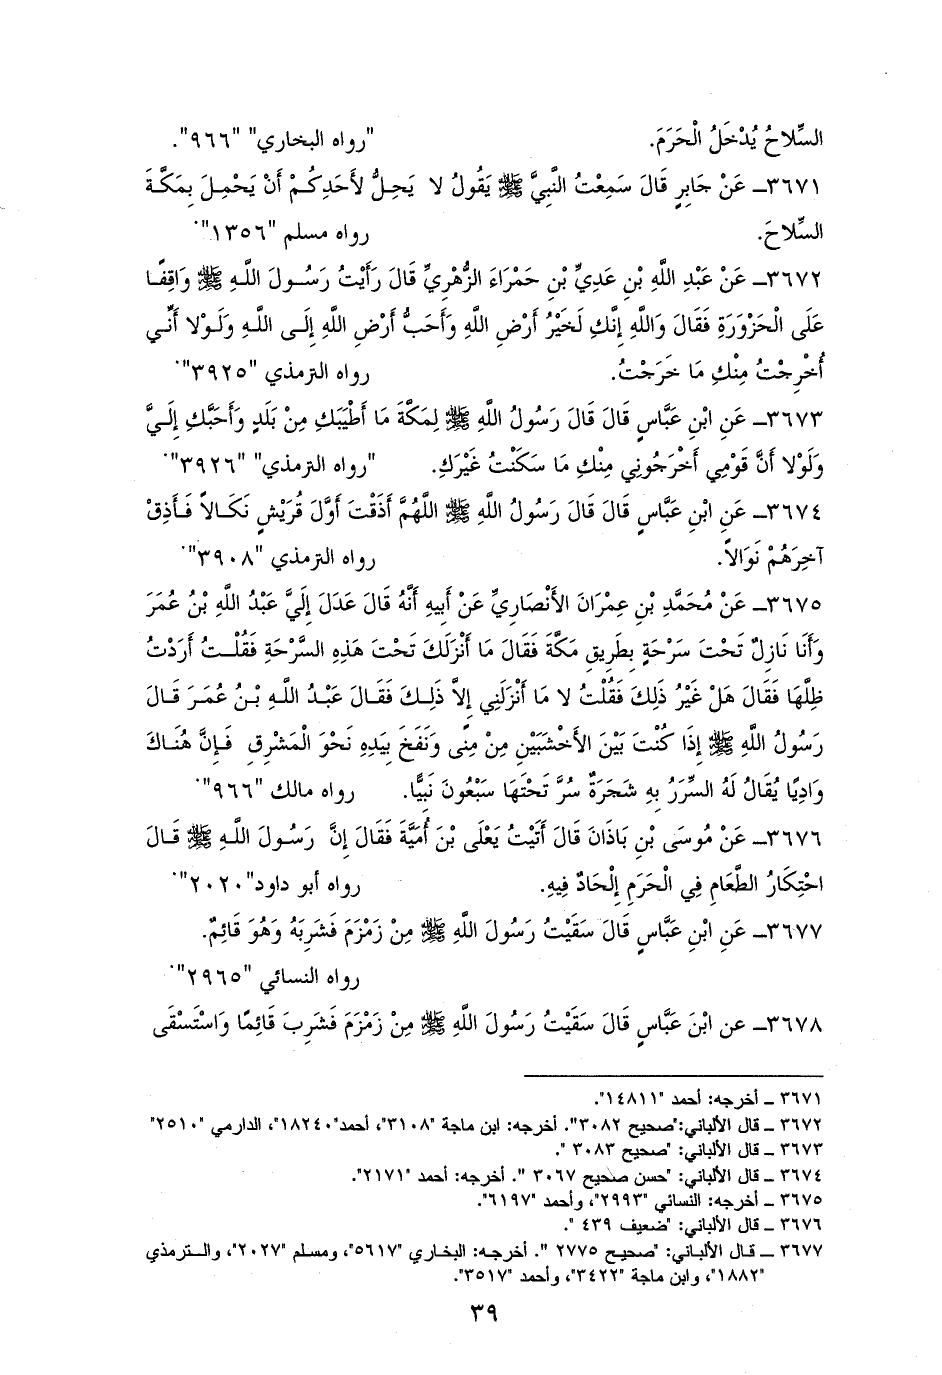 السِّلاحُ يُدْخَلُ الْحَرَمَ. "رواه البخاري" "٩٦٦".
٣٦٧١ـ عَنْ جَابِرٍ قَالَ سَمِعْتُ النَّبِيَّ ﷺ يَقُولُ لا يَحِلُّ لأَحَدِكُمْ أَنْ يَحْمِلَ بِمَكَّةَ
السِّلاحَ. رواه مسلم "١٣٥٦".
٣٦٧٢ـ عَنْ عَبْدِ اللَّهِ بْنِ عَدِيِّ بْنِ حَمْرَاءَ الزُّهْرِيِّ قَالَ رَأَيْتُ رَسُولَ اللَّهِ ﷺ وَاقِفًا
عَلَى الْحَزْوَرَةِ فَقَالَ وَاللَّهِ إِنَّكِ لَخَيْرُ أَرْضِ اللَّهِ وَأَحَبُّ أَرْضِ اللَّهِ إِلَى اللَّهِ وَلَوْلا أَنِّي
أُخْرِجْتُ مِنْكِ مَا خَرَجْتُ. رواه الترمذي "٣٩٢٥".
٣٦٧٣ـ عَنِ ابْنِ عَبَّاسٍ قَالَ قَالَ رَسُولُ اللَّهِ ﷺ لِمَكَّةَ مَا أَطْيَبَكِ مِنْ بَلَدٍ وَأَحَبَّكِ إِلَيَّ
وَلَوْلا أَنَّ قَوْمِي أَخْرَجُونِي مِنْكِ مَا سَكَنْتُ غَيْرَكِ. "رواه الترمذي" "٣٩٢٦".
٣٦٧٤ـ عَنِ ابْنِ عَبَّاسٍ قَالَ قَالَ رَسُولُ اللَّهِ ﷺ اللَّهُمَّ أَذَقْتَ أَوَّلَ قُرَيْشٍ نَكَالاً فَأَذِقْ
آخِرَهُمْ نَوَالاً. رواه الترمذي "٣٩٠٨".
٣٦٧٥ـ عَنْ مُحَمَّدِ بْنِ عِمْرَانَ الأَنْصَارِيِّ عَنْ أَبِيهِ أَنَّهُ قَالَ عَدَلَ إِلَيَّ عَبْدُ اللَّهِ بْنُ عُمَرَ
وَأَنَا نَازِلٌ تَحْتَ سَرْحَةٍ بِطَرِيقِ مَكَّةَ فَقَالَ مَا أَنْزَلَكَ تَحْتَ هَذِهِ السَّرْحَةِ فَقُلْتُ أَرَدْتُ
ظِلَّهَا فَقَالَ هَلْ غَيْرُ ذَلِكَ فَقُلْتُ لا مَا أَنْزَلَنِي إِلاَّ ذَلِكَ فَقَالَ عَبْدُ اللَّهِ بْنُ عُمَرَ قَالَ
رَسُولُ اللَّهِ ﷺ إِذَا كُنْتَ بَيْنَ الأَخْشَبَيْنِ مِنْ مِنًى وَنَفَخَ بِيَدِهِ نَحْوَ الْمَشْرِقِ فَإِنَّ هُنَاكَ
وَادِيًا يُقَالُ لَهُ السِّرَرُ بِهِ شَجَرَةٌ سُرَّ تَحْتَهَا سَبْعُونَ نَبِيًّا. رواه مالك "٩٦٦".
٣٦٧٦ـ عَنْ مُوسَى بْنِ بَاذَانَ قَالَ أَتَيْتُ يَعْلَى بْنَ أُمَيَّةَ فَقَالَ إِنَّ رَسُولَ اللَّهِ ﷺ قَالَ
احْتِكَارُ الطَّعَامِ فِي الْحَرَمِ إِلْحَادٌ فِيهِ. رواه أبو داود"٢٠٢٠".
٣٦٧٧ـ عَنِ ابْنِ عَبَّاسٍ قَالَ سَقَيْتُ رَسُولَ اللَّهِ ﷺ مِنْ زَمْزَمَ فَشَرِبَهُ وَهُوَ قَائِمٌ.
رواه النسائي "٢٩٦٥".
٣٦٧٨ـ عن ابْنَ عَبَّاسٍ قَالَ سَقَيْتُ رَسُولَ اللَّهِ ﷺ مِنْ زَمْزَمَ فَشَرِبَ قَائِمًا وَاسْتَسْقَى
٣٦٧١ ـ أخرجه: أحمد "١٤٨١١".
٣٦٧٢ ـ قال الألباني:"صحيح ٣٠٨٢". أخرجه: ابن ماجة "٣١٠٨"، أحمد"١٨٢٤٠"، الدارمي "٢٥١٠"
٣٦٧٣ ـ قال الألباني: "صحيح ٣٠٨٣ ".
٣٦٧٤ ـ قال الألباني: "حسن صحيح ٣٠٦٧ ". أخرجه: أحمد "٢١٧١".
٣٦٧٥ ـ أخرجه: النسائي "٢٩٩٣"، وأحمد "٦١٩٧".
٣٦٧٦ ـ قال الألباني: "ضعيف ٤٣٩ ".
٣٦٧٧ ـ قال الألباني: "صحيح ٢٧٧٥ ". أخرجه: البخاري "٥٦١٧"، ومسلم "٢٠٢٧"، والترمذي
"١٨٨٢"، وابن ماجة "٣٤٢٢"، وأحمد "٣٥١٧".
٣٩